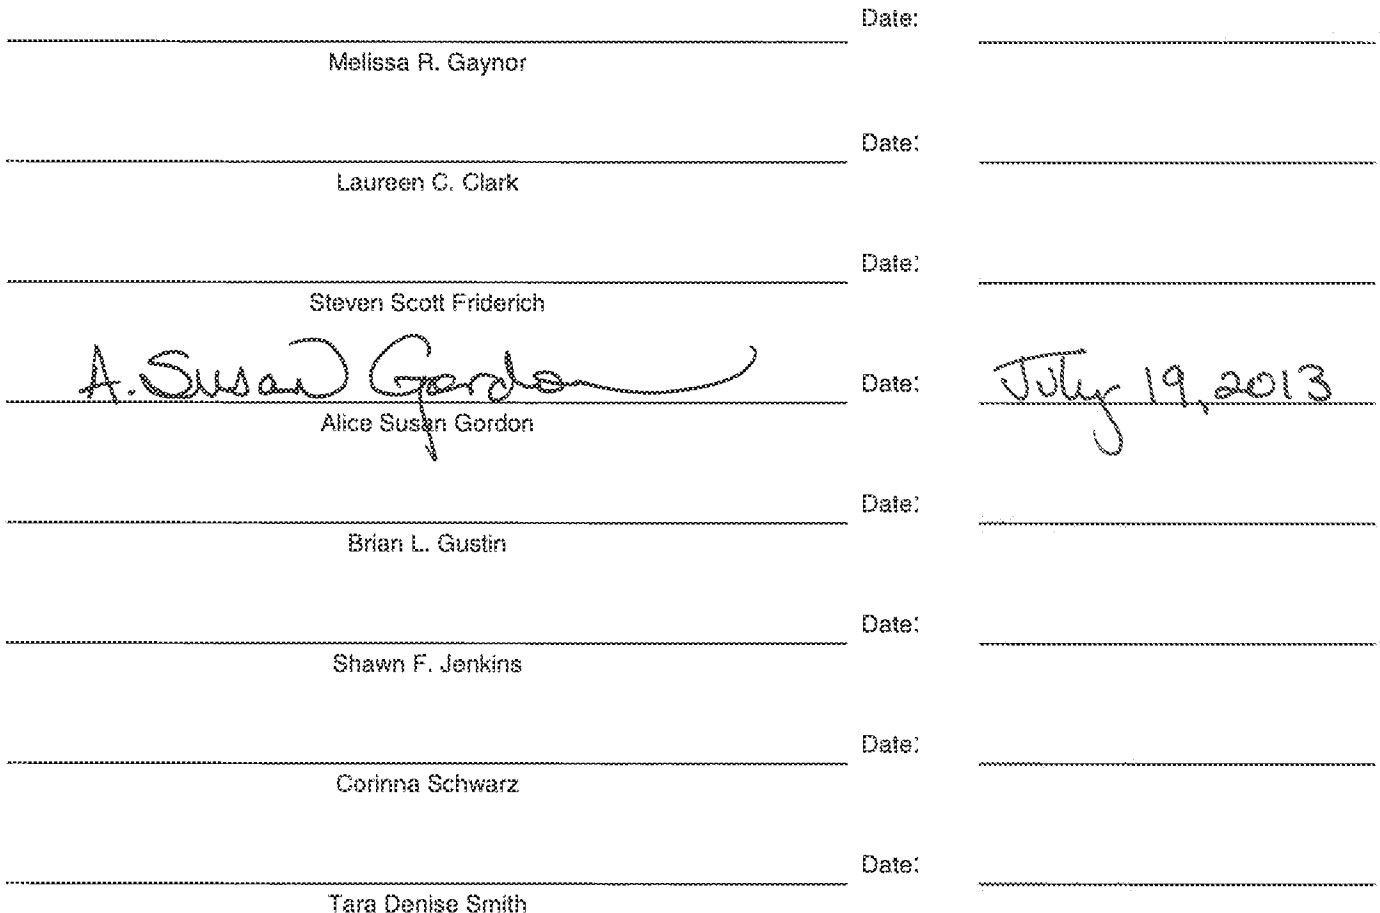 Date:
Melissa R. Gaynor
Date:
Laureen C. Clark
Date:
Steven Scott Friderich
A. Susan Gordon Date: July 19, 2013
Alice Susan Gordon
Date:
Brian L. Gustin
Date:
Shawn F. Jenkins
Date:
Corinna Schwarz
Date:
Tara Denise Smith